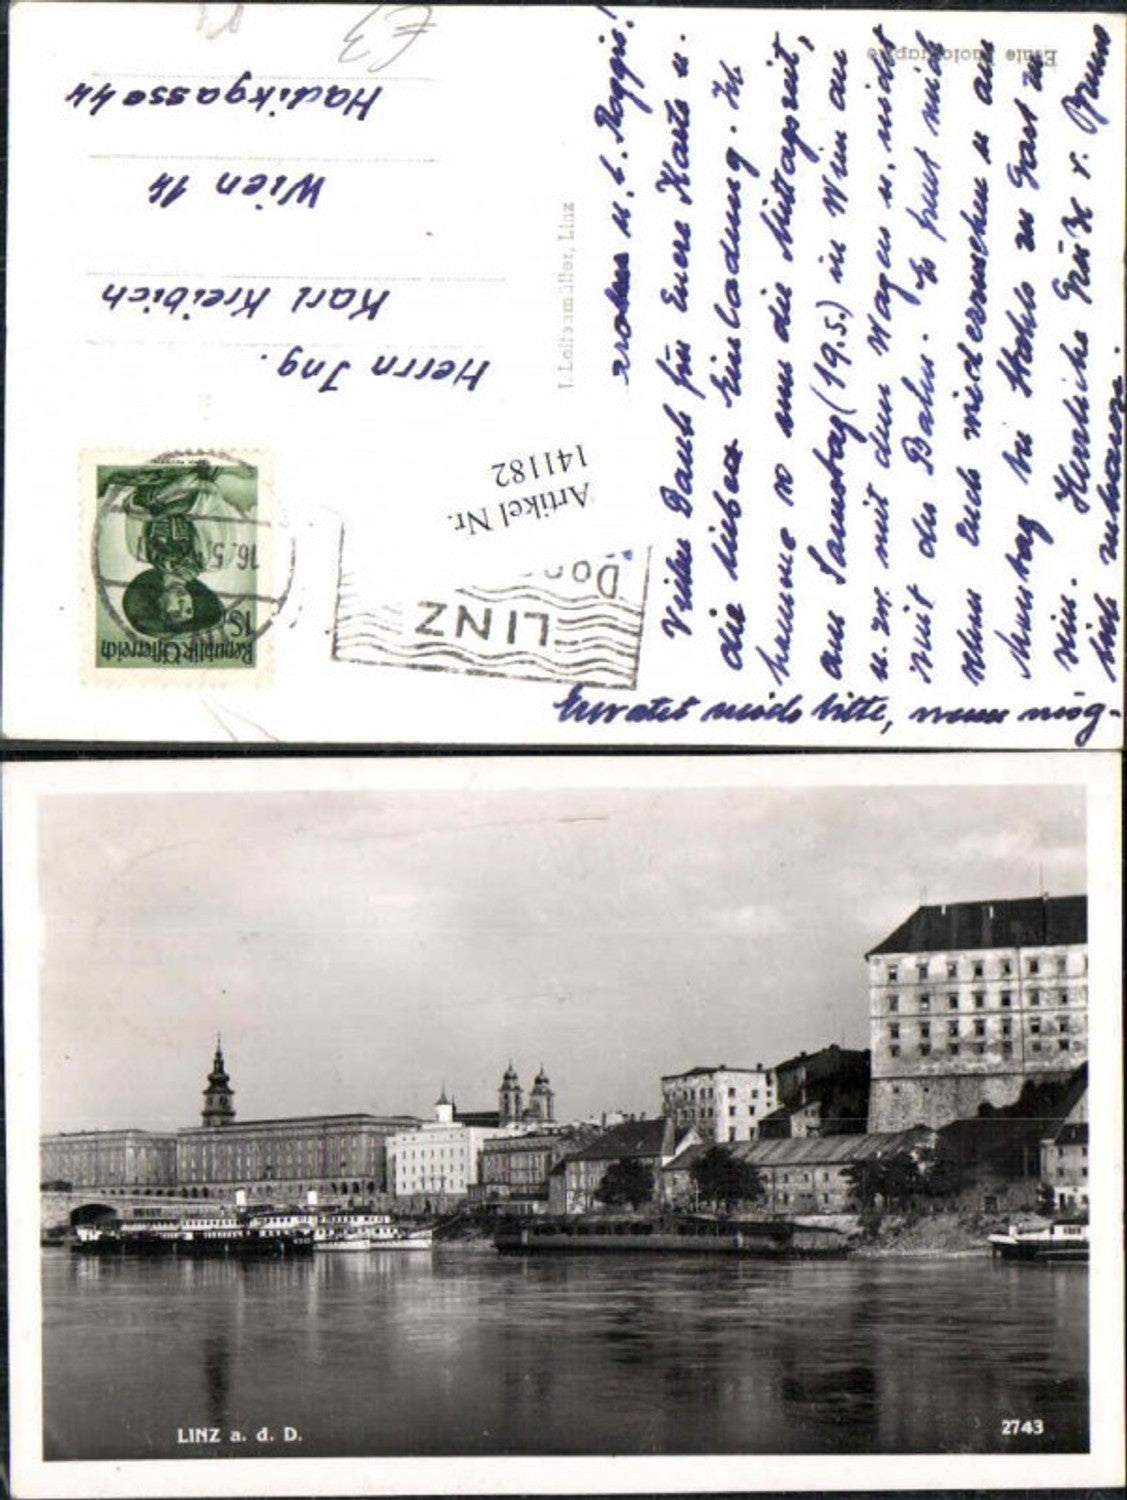 Echte Photographie
Vielen Dank für Euere Karte u.
die liebe Einladung. Ich
komme so um die Mittagszeit,
am Samstag (19.5.) in Wien an
u. zw. mit dem Wagen u. nicht
mit der Bahn. Es freut mich
Euch wiederzusehen u. am
zu Gast zu
sein. Herzliche Grüße v. Bruno
Erwartet mich bitte, wenn mög-
lich zuhause.
J. Leitenmüller, Linz
Republik Österreich
1S
16.5.
LINZ
Artikel Nr.
141182
Herrn Ing.
Karl Kreibich
Wien 14
Hadikgasse 44
£3
LINZ a. d. D.
2743